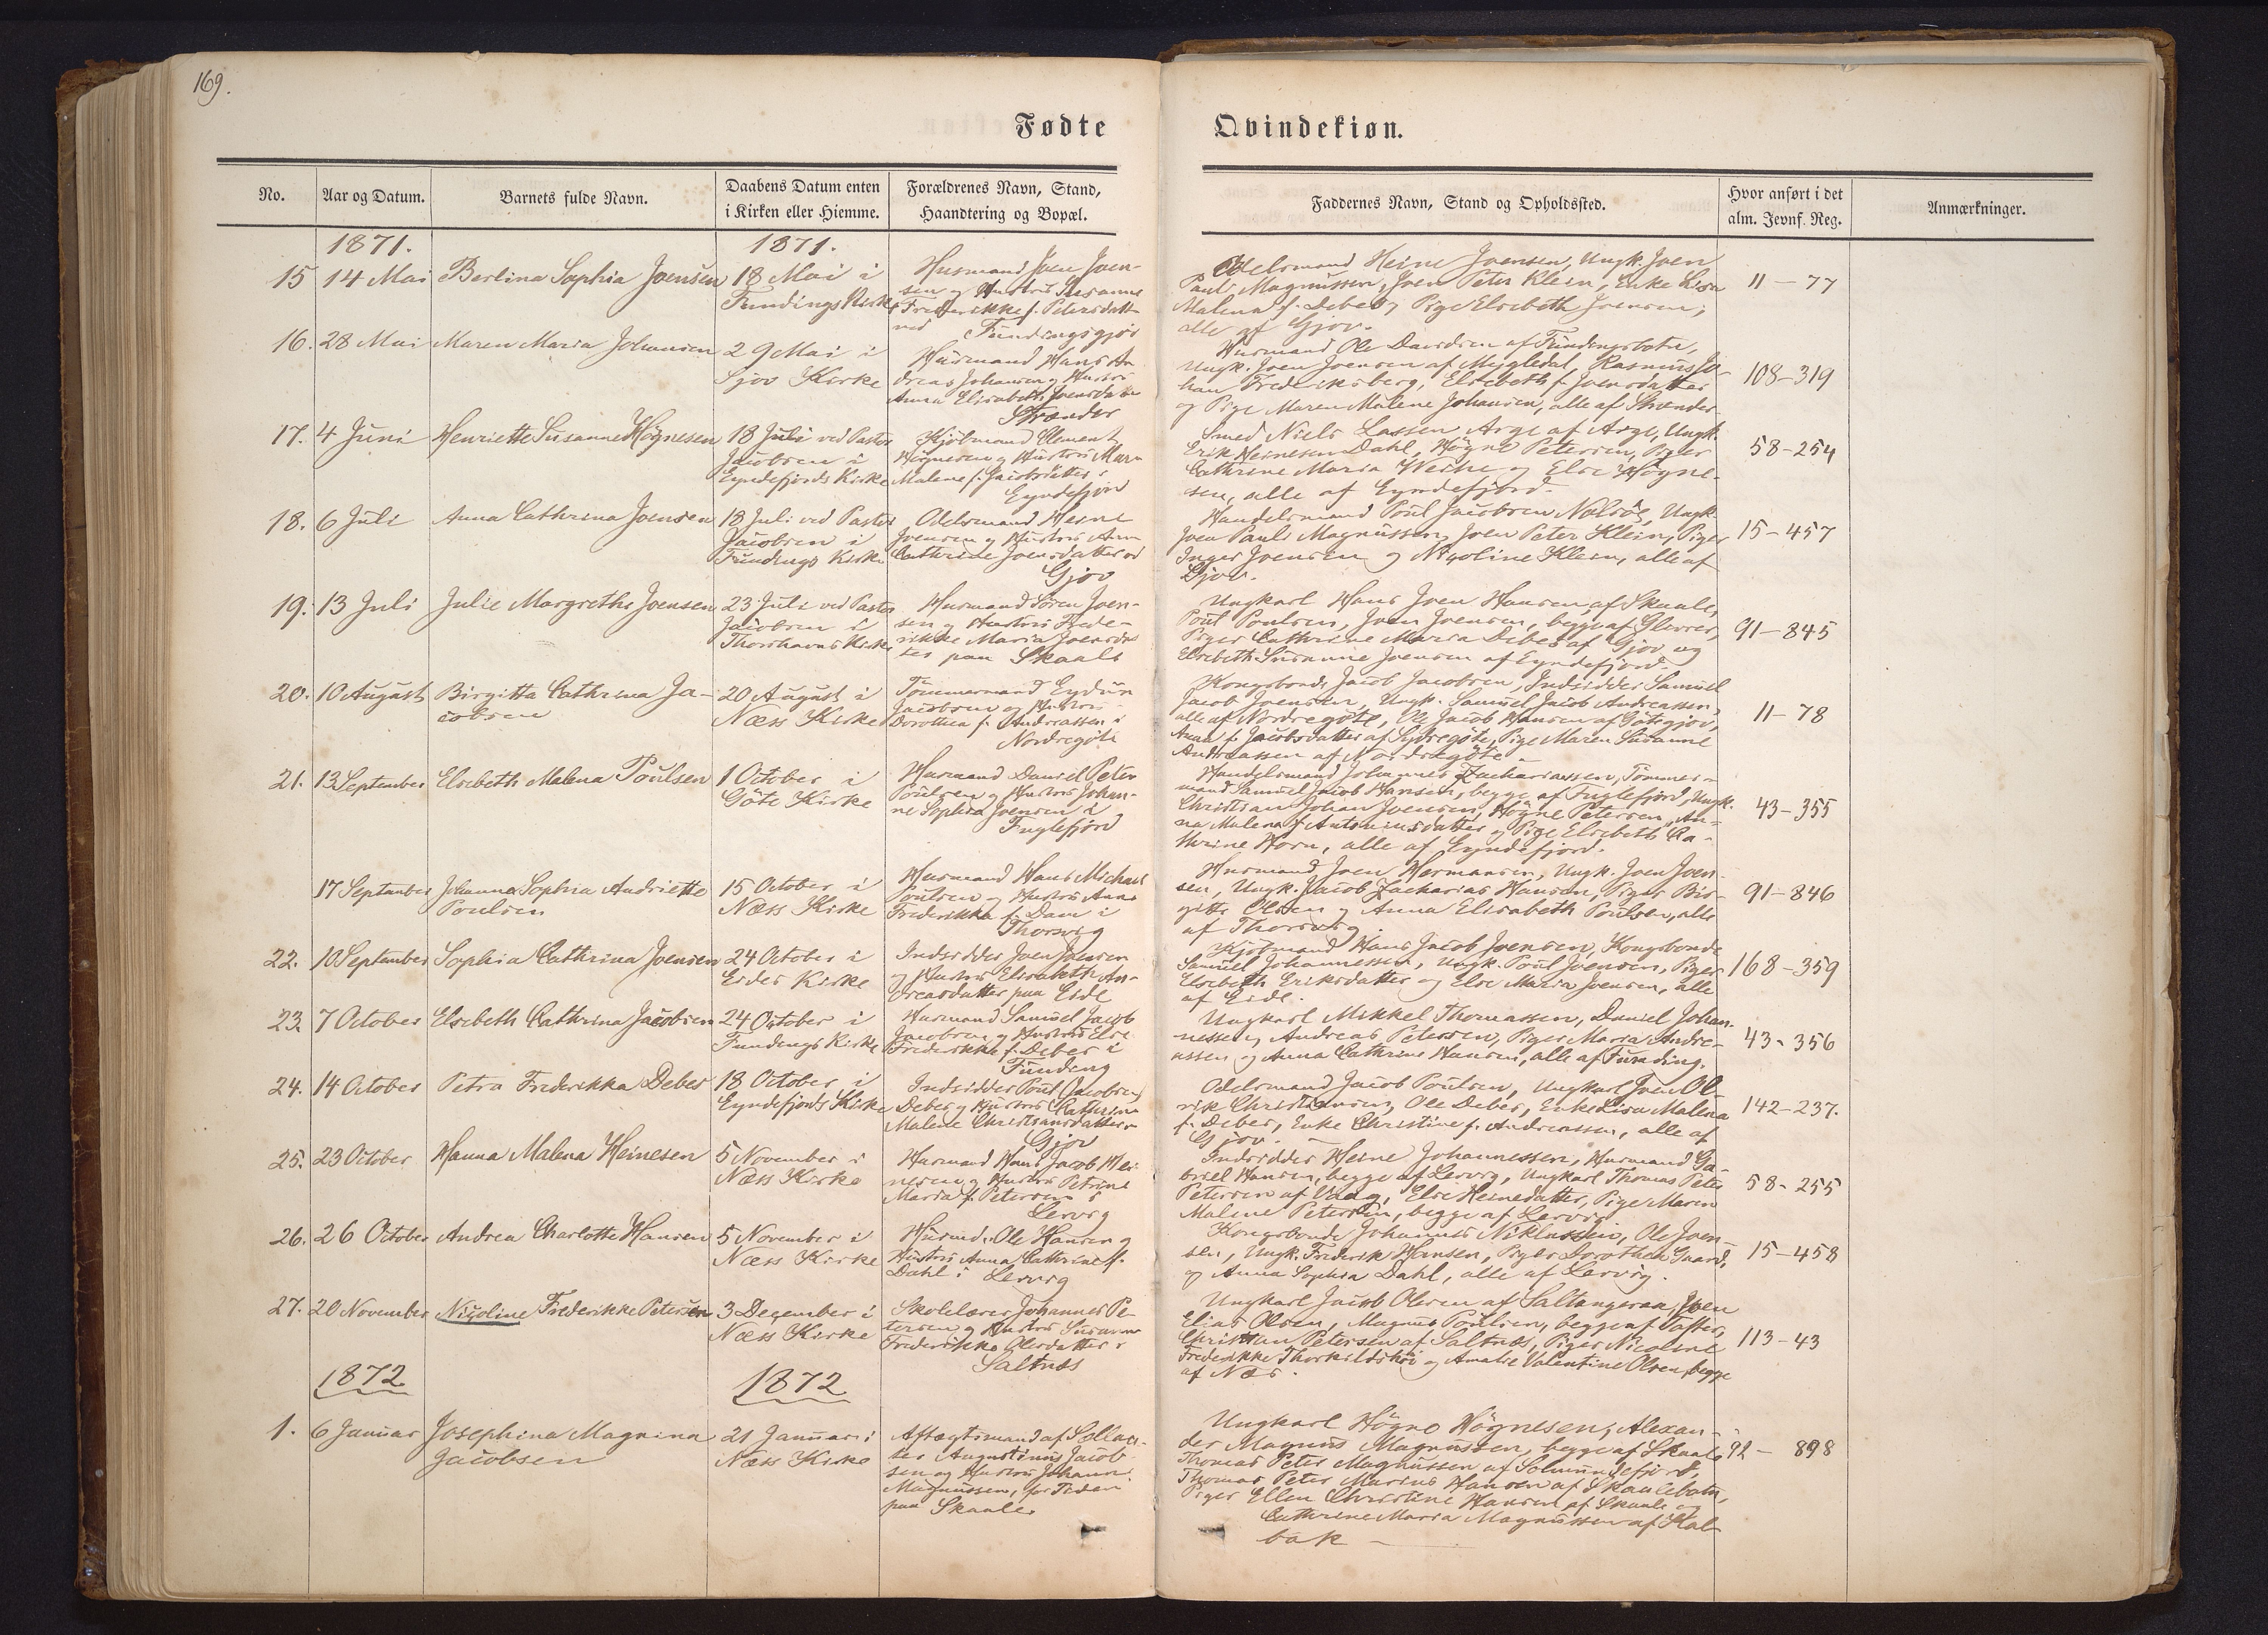 169.
Fødte
Qvindekiøn.
No.
Aar og Datum.
Barnets fulde Navn.
Daabens Datum enten
i Kirken eller Hiemme.
Forældrenes Navn, Stand,
Haandtering og Bopæl.
Faddernes Navn, Stand og Opholdssted.
Hvor anført i det
alm. Jevnf. Reg.
Anmærkninger.
1871.
1871.
15
14 Mai
Berlina Sophia Joensen
18 Mai i
Fundings Kirke
Husmand Joen Joen-
sen og Hustrü Susanne
Frederikke f. Petersdatt
ved
Fundingsgjov
Odelsmand Heine Joensen, Ungk. Joen
Pauli Magnussen, Joen Peter Klein, Enke Lisa
Malena f. Debes, Pige Elsebeth Joensen,
alle af Gjov.
11 — 77
16.
28 Mai
Maren Maria Johansen
29 Mai i
Gjov Kirke
Husmand Hans An
dreas Johansen og Hustrü
Anna Elisabeth Joensdatter
Strænder
Husmand Ole Davidsen af Fundingsbotn,
Ungk. Joen Joensen af Mygledal, Rasmus Jo-
han Frederiksberg, Elsebeth f. Joensdatter
og Pige Maren Malene Johansen, alle af Strænder
108-319
17.
4 Juni
Henriette Susanne Høgnesen
18 Juli ved Pastor
Jacobsen i
Eyndefjords Kirke
Kjøbmand Clement
Høgnesen og Hustrü Maren
Malene f. Jacobsdatter i
Eyndefjord
Smed Niels Lassen Arge af Arge, Ungk.
Erik Heinesen Dahl, Høgne Petersen, Piger
Cathrine Maria Weihe og Else Høgne-
sen, alle af Eyndefjord.
58-254
18.
6 Juli
Anna Cathrina Joensen
18 Juli ved Pastor
Jacobsen i
Fundings Kirke
Odelsmand Heine
Joensen og Hustrü Ann
Cathrine Joensdatter ved
Gjov
Handelsmand Poul Jacobsen Nolsøe, Ungk.
Joen Pauli Magnussen, Joen Peter Klein, Piger
Inger Joensen og Nicoline Klein, alle af
Gjov.
15-457
19.
13 Juli
Julie Margrethe Joensen
23 Juli ved Pastor
Jacobsen i
Thorshavns Kirke
Husmand Søren Joen-
sen og Hustrü Frede-
rikke Maria Joensdat
ter paa Skaale
Ungkarl Hans Joen Hansen af Skaale,
Poul Poulsen, Joen Joensen, begge af Glivrer,
Piger Cathrine Maria Debes af Gjov og
Elsebeth Susanne Joensen af Eyndefjord.
91-845
20.
10 August
Birgitta Cathrina Ja-
cobsen
20 August i
Næss Kirke
Tømmermand Eydün
Jacobsen og Hustrü
Dorothea f. Andreassen i
Nordregøte
Kongsbonde Jacob Jacobsen, Indsidder Samuel
Jacob Joensen, Ungk. Samuel Jacob Andreassen,
alle af Nordregøte, Ole Jacob Hansen af Gøtegjov,
Anna f. Jacobsdatter af Sydregøte, Pige Maren Susanne
Andreassen af Nordregøte
11-78
21.
13 September
Elsebeth Malena Poulsen
1 October i
Gøte Kirke
Husmand Daniel Peter
Poulsen og Hustrü Johan-
ne Sophia Joensen i
Fuglefjord
Handelsmand Johannes Zachariassen, Tømmer-
mand Samuel Jacob Hansen, begge af Fuglefjord, Ungk.
Christian Johan Joensen, Høgne Petersen, An-
na Malena f. Antoniusdatter og Pige Elsebeth Ca-
thrine Horn, alle af Eyndefjord.
43-355
17 September
Johanna Sophia Andriette
Poulsen
15 October i
Næss Kirke
Husmand Hans Michael
Poulsen og Hustrü Anne
Frederikka f. Dam i
Thorsvig
Husmand Joen Hermansen, Ungk. Joen Joen-
sen, Ungk. Jacob Zacharias Hansen, Piger Bir-
gitte Olsen og Anna Elisabeth Poulsen, alle
af Thorsvig
91-846
22.
10 September
Sophia Cathrina Joensen
24 October i
Eides Kirke
Indsidder Joen Joensen
og Hustrü Elisabeth An-
dreasdatter paa Eide
Kjøbmand Hans Jacob Joensen, Kongsbonde
Samuel Johannessen, Ungk. Poul Joensen, Piger
Elsebeth Eriksdatter og Else Maria Joensen, alle
af Eide.
168-359
23.
7 October
Elsebeth Cathrina Jacobsen
24 October i
Fundings Kirke
Husmand Samuel Jacob
Jacobsen og Hustrü Else
Frederikka f. Debes i
Funding
Ungkarl Mikkel Thomassen, Daniel Johan-
nessen, Andreas Petersen, Piger Maria Andre-
assen og Anna Cathrine Hansen, alle af Funding.
43-356
24.
14 October
Petra Frederikka Debes
18 October i
Eyndefjords Kirke
Indsidder Poul Jacobsen
Debes og Hustrü Cathrine
Malene Christiansdatter
Gjov
Odelsmand Jacob Poulsen, Ungkarl Joen Ol-
rik Christiansen, Ole Debes, Enke Lisa Malena
f. Debes, Enke Christine f. Andreassen, alle af
Gjov.
142-237.
25.
23 October
Hanna Malena Heinesen
5 November i
Næss Kirke
Husmand Hans Jacob Hei-
nesen og Hustrü Petrine
Maria f. Petersen i
Lervig
Indsidder Heine Johannessen, Husmand Ga-
briel Hansen, begge af Lervig, Ungkarl Thomas Peter
Petersen af Vaag, Else Heinedatter, Pige Maren
Malene Petersen, begge af Lervig
58-255
26.
26 October
Andrea Charlotte Hansen
5 November i
Næss Kirke
Husmd. Ole Hansen og
Hustrü Anna Cathrine f.
Dahl i Lervig
Kongsbonde Johannes Niklassen, Ole Joen-
sen, Ungk. Frederik Hansen, Piger Dorothea Gaard,
og Anna Sophia Dahl, alle af Lervig.
15-458
27.
20 November
Nicoline Frederikke Petersen
3 December i
Næss Kirke
Skolelærer Johannes Pe-
tersen og Hustrü Susanne
Frederikke Olesdatter i
Saltnæs
Ungkarl Jacob Olesen af Saltangeraa, Joen
Elias Olsen, Magnus Poulsen, begge af Tofter,
Christian Petersen af Saltnæs, Piger Nicoline
Frederikke Thorkildshøi og Amalie Valentine Olsen, begge
af Næs.
113-43
1872
1872
1.
6 Januar
Josephina Magnina
Jacobsen
21 Januar i
Næss Kirke
Aftægtsmand af
Augustinus Jacob-
sen og Hustrü Johanne
Magnussen, for Tiden
paa Skaale
Ungkarl Høgne Høgnesen, Alexan-
der Magnus Magnussen, begge af Skaale
Thomas Peter Magnussen af Solmundefjord,
Thomas Peter Marius Hansen af Skaalebotn,
Piger Ellen Christine Hansen af Skaale og
Cathrine Maria Magnussen af Kal-
bak
92 — 898